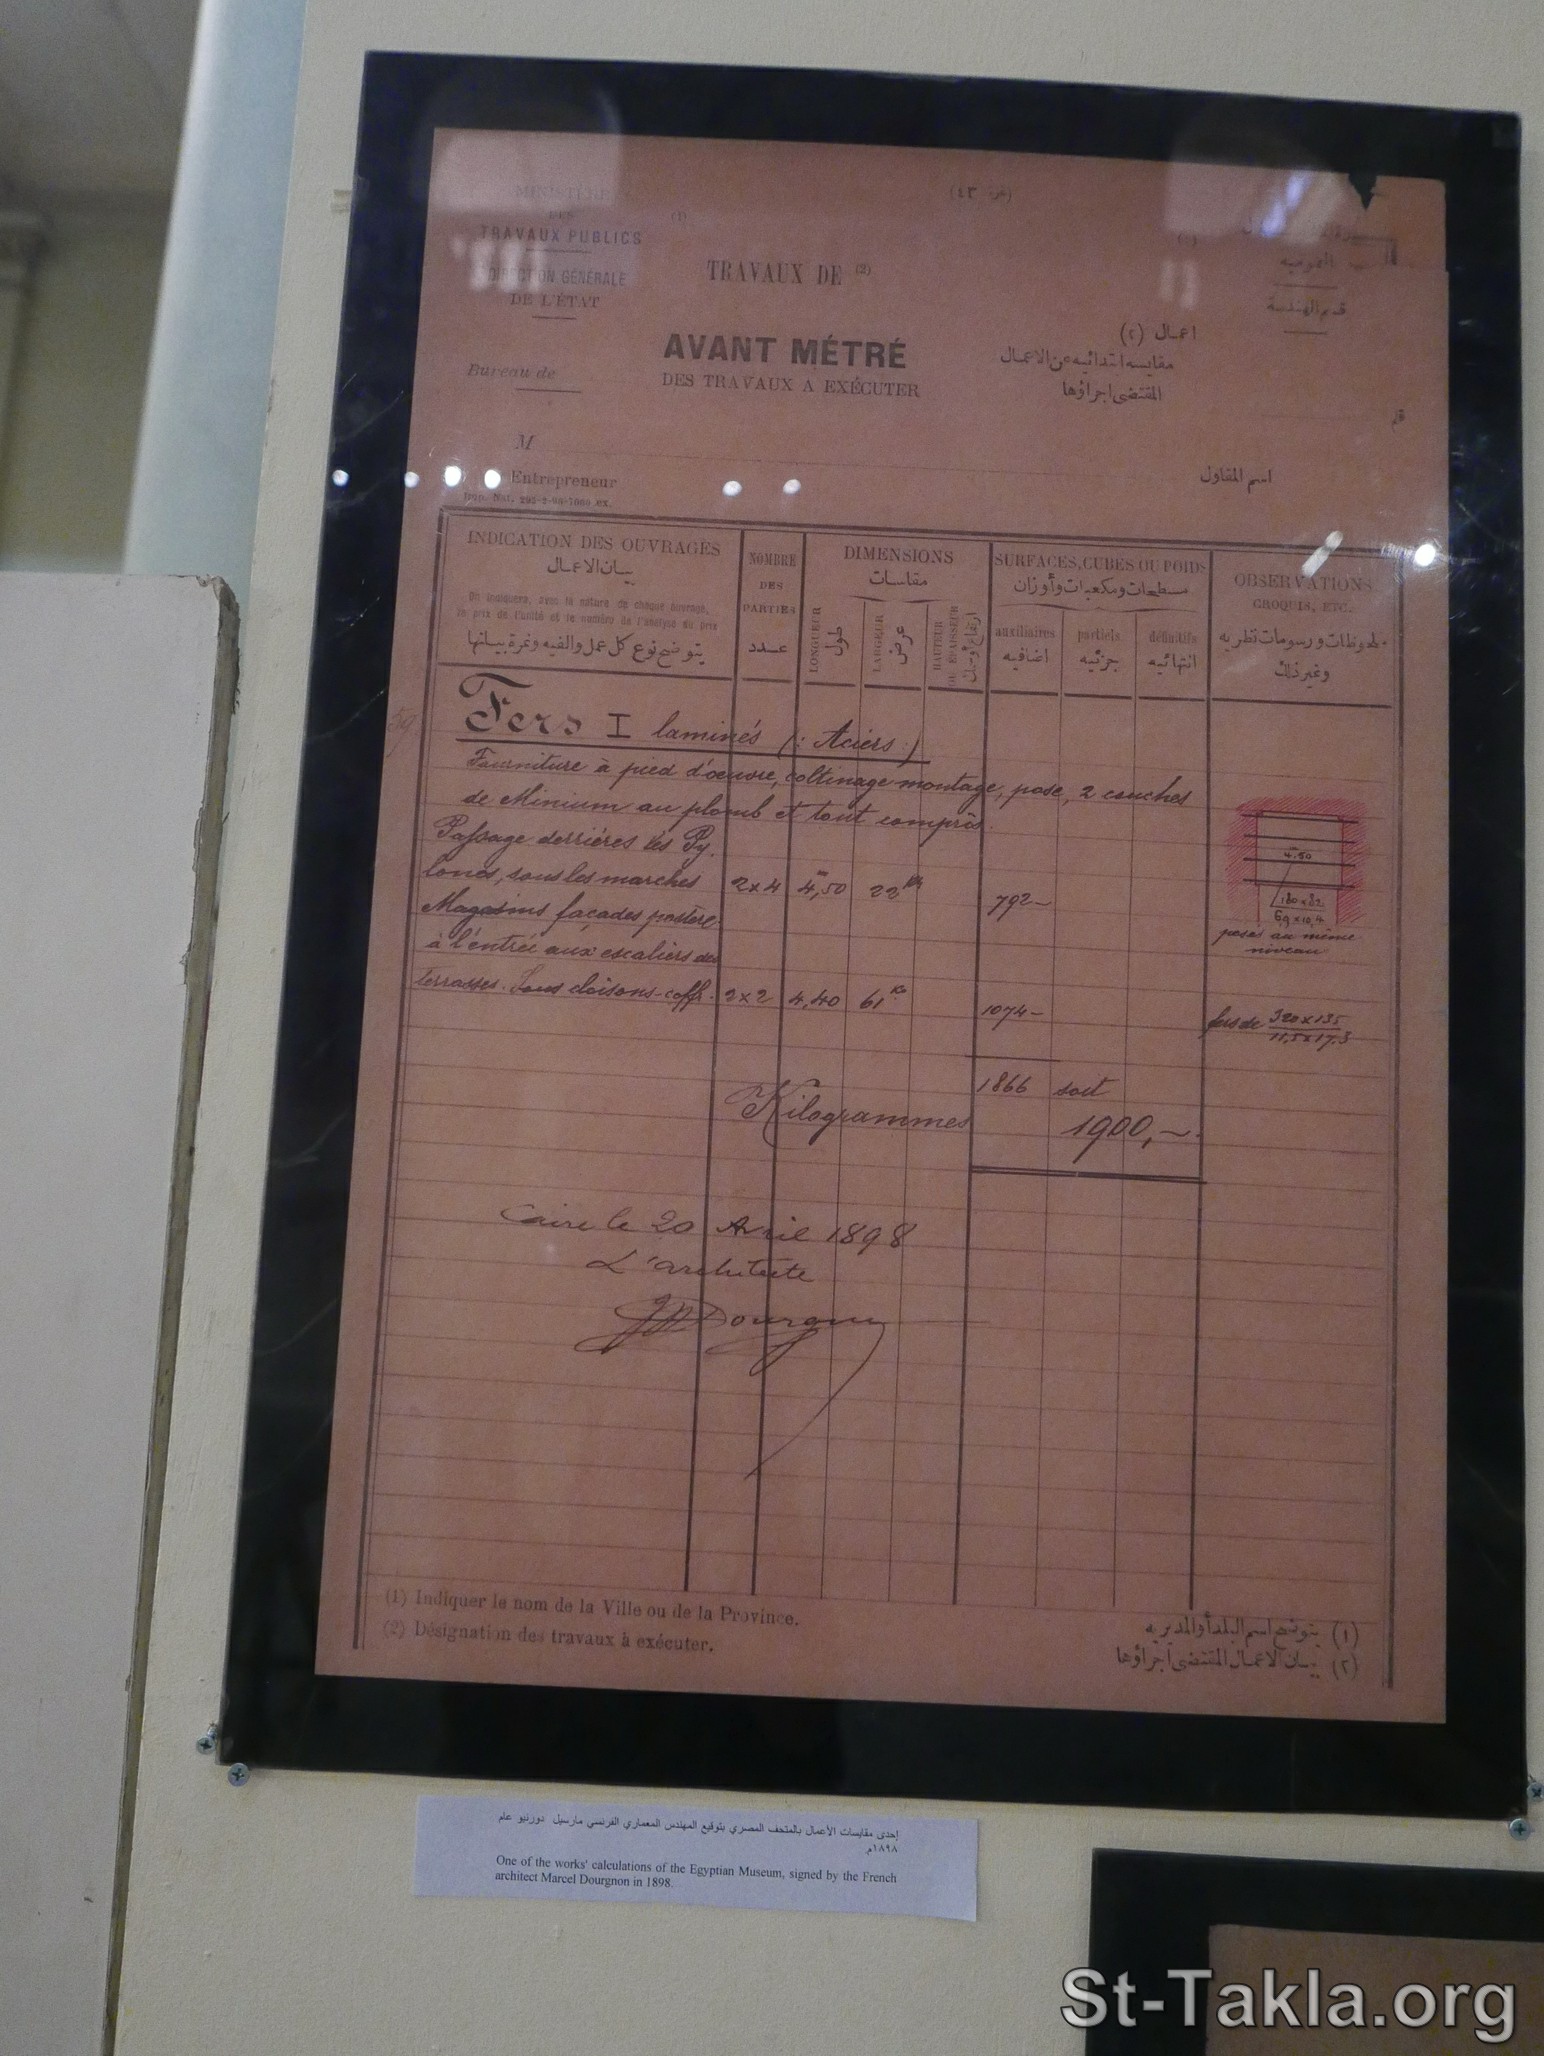 MINISTÈRE
DES
TRAVAUX PUBLICS
DIRECTION GÉNÉRALE
DE L'ÉTAT
Bureau de
(1)
TRAVAUX DE (2)
AVANT MÉTRÉ
DES TRAVAUX A EXÉCUTER
العمومية
قسم الهندسة
اعمال (٢)
مقايسه ابتدائيه عن الاعمال
المقتضى اجراؤها
قلم
M
Entrepreneur
اسم المقاول
INDICATION DES OUVRAGES
بيان الاعمال
On indiquera, avec la nature de chaque ouvrage,
le prix de l'unité et le numéro de l'analyse du prix
يتوضح نوع كل عمل والفيه ونمرة بيانها
NOMBRE
DES
PARTIES
عدد
DIMENSIONS
مقاسات
LONGUEUR
طول
LARGEUR
عرض
HAUTEUR
OU ÉPAISSEUR
SURFACES, CUBES OU POIDS
مسطحات ومكعبات وأوزان
auxiliaires
اضافيه
partiels
جزئيه
définitifs
انتهائيه
OBSERVATIONS
CROQUIS, ETC.
ملحوظات ورسومات نظريه
وغير ذلك
59
Fers I laminés (: Aciers :)
Fourniture à pied d'oeuvre, coltinage montage, pose, 2 couches
de Minium au plomb et tout compris.
Passage derrières les Py.
lones, sous les marches 2x4 4,50 22 Kg 792 —
Magasins façades postère.
à l'entrée aux escaliers des
terrasses. Sous cloisons-coffr. 2x2 4,40 61 Ko 1074 —
4.50
180 x 82
6,9 x 10,4
poses au même
niveau
fers de 320 x 135
11,5 x 17,3
1866 soit
Kilogrammes 1900, —
Caire le 20 Avril 1898
L'architecte
Dourgnon
(1) Indiquer le nom de la Ville ou de la Province.
(2) Désignation des travaux à exécuter.
(١) يتوضح اسم البلد أو المديريه
(٢) بيان الاعمال المقتضى اجراؤها
إحدى مقايسات الأعمال بالمتحف المصري بتوقيع المهندس المعماري الفرنسي مارسيل دورنيو عام
١٨٩٨م.
One of the works' calculations of the Egyptian Museum, signed by the French
architect Marcel Dourgnon in 1898.
St-Takla.org